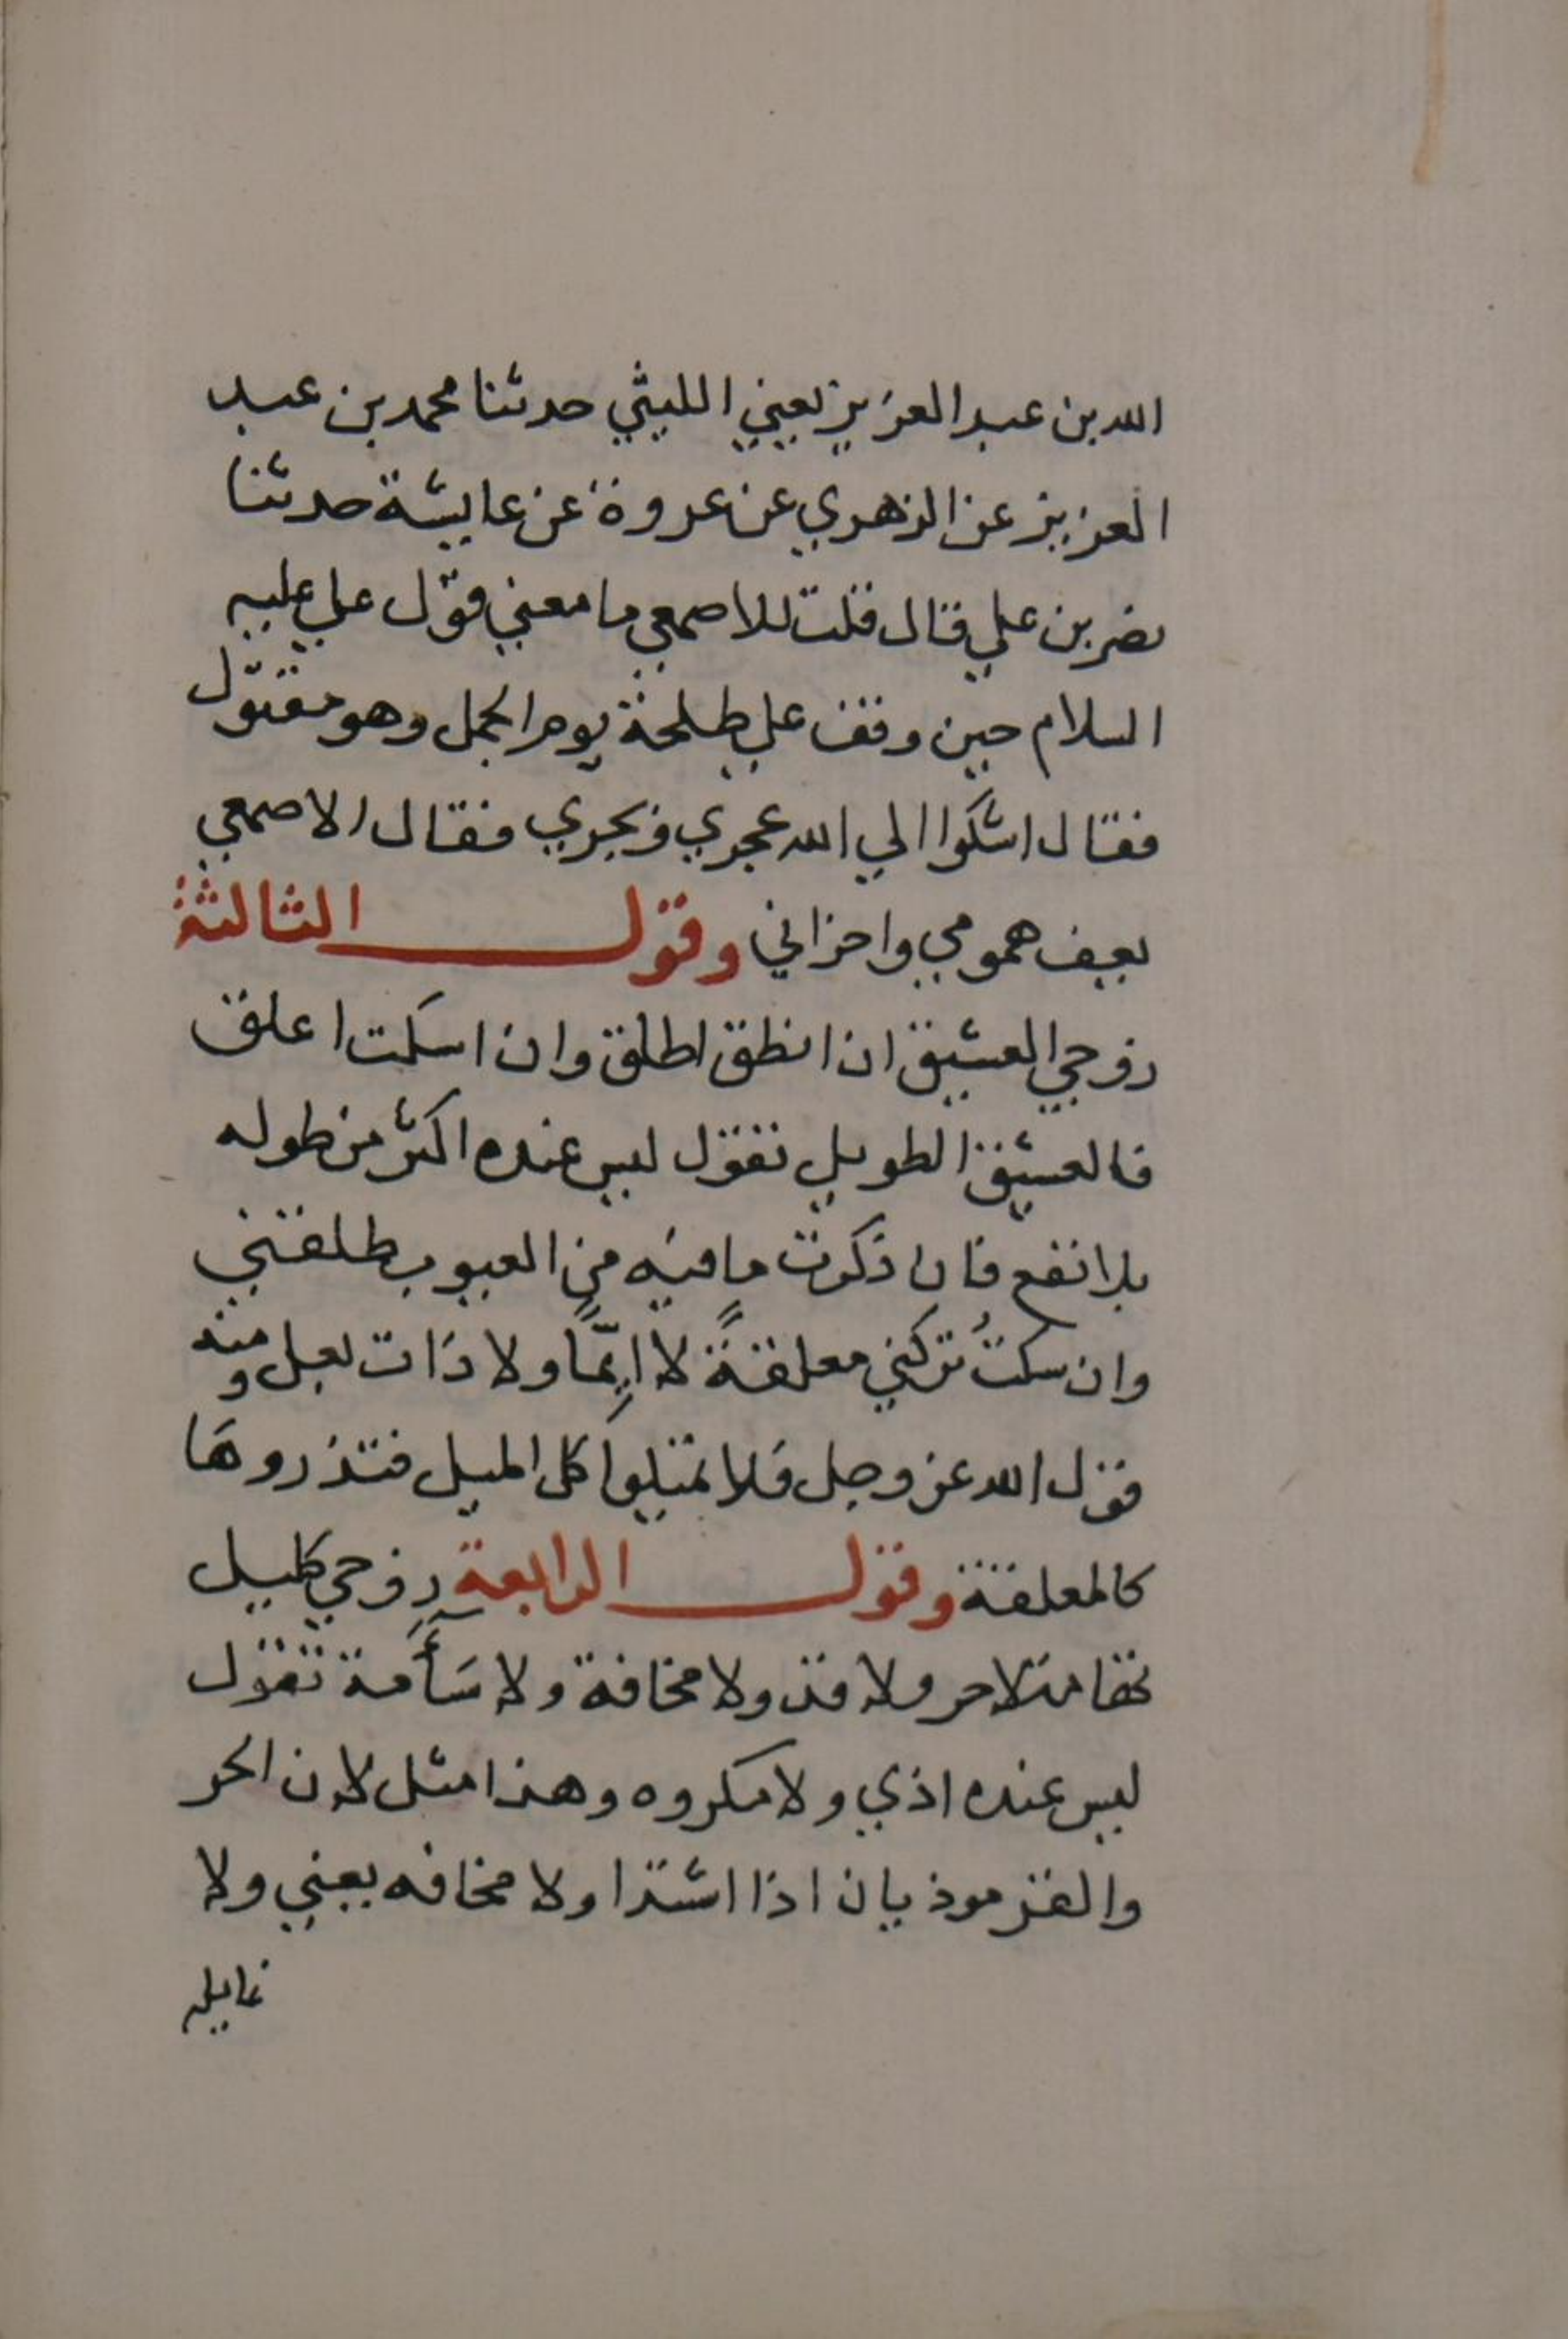 الله بن عبد العزيز يعني الليثي حدثنا محمد بن عبد
العزيز عن الزهري عن عروة عن عايشة حدثنا
نصر بن علي قال قلت للاصمعي ما معني قول علي عليه
السلام حين وقف علي طلحة يوم الجمل وهو مقتول
فقال اشكوا الي الله عجري وبجري فقال الاصمعي
يعني همومي واحزاني وقول الثالثة
زوجي العشيق ان انطق اطلق وان اسكت اعلق
فالعشيق الطويل تقول ليس عنده اكثر من طوله
بلا نفع فان ذكرت ما فيه من العيوب طلقني
وان سكتُ تركني معلقةً لا ايِّمًا ولا ذات بعل ومنه
قول الله عز وجل فلا تميلوا كل الميل فتذروها
كالمعلقة وقول الرابعة زوجي كليل
تهامة لا حر ولا قر ولا مخافة ولا سَأَمة تقول
ليس عنده اذي ولا مكروه وهذا مثل لان الحر
والقر موذيان اذا اشتدا ولا مخافه يعني ولا
غايله